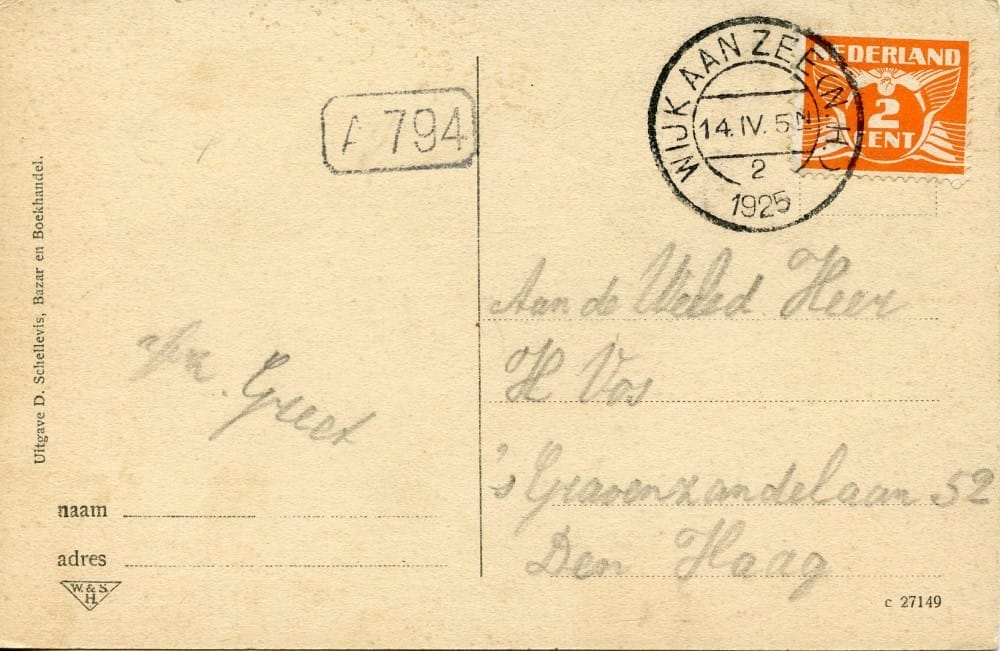 Uitgave D. Schellevis, Bazar en Boekhandel.
A 794
WIJK AAN ZEE (N.H.)
14.IV.5N
2
1925
NEDERLAND
2
CENT
Aan de Weled. Heer
H Vos
's Gravenzandelaan 52
Den Haag
Greet
naam
adres
W. & S.
H.
c 27149